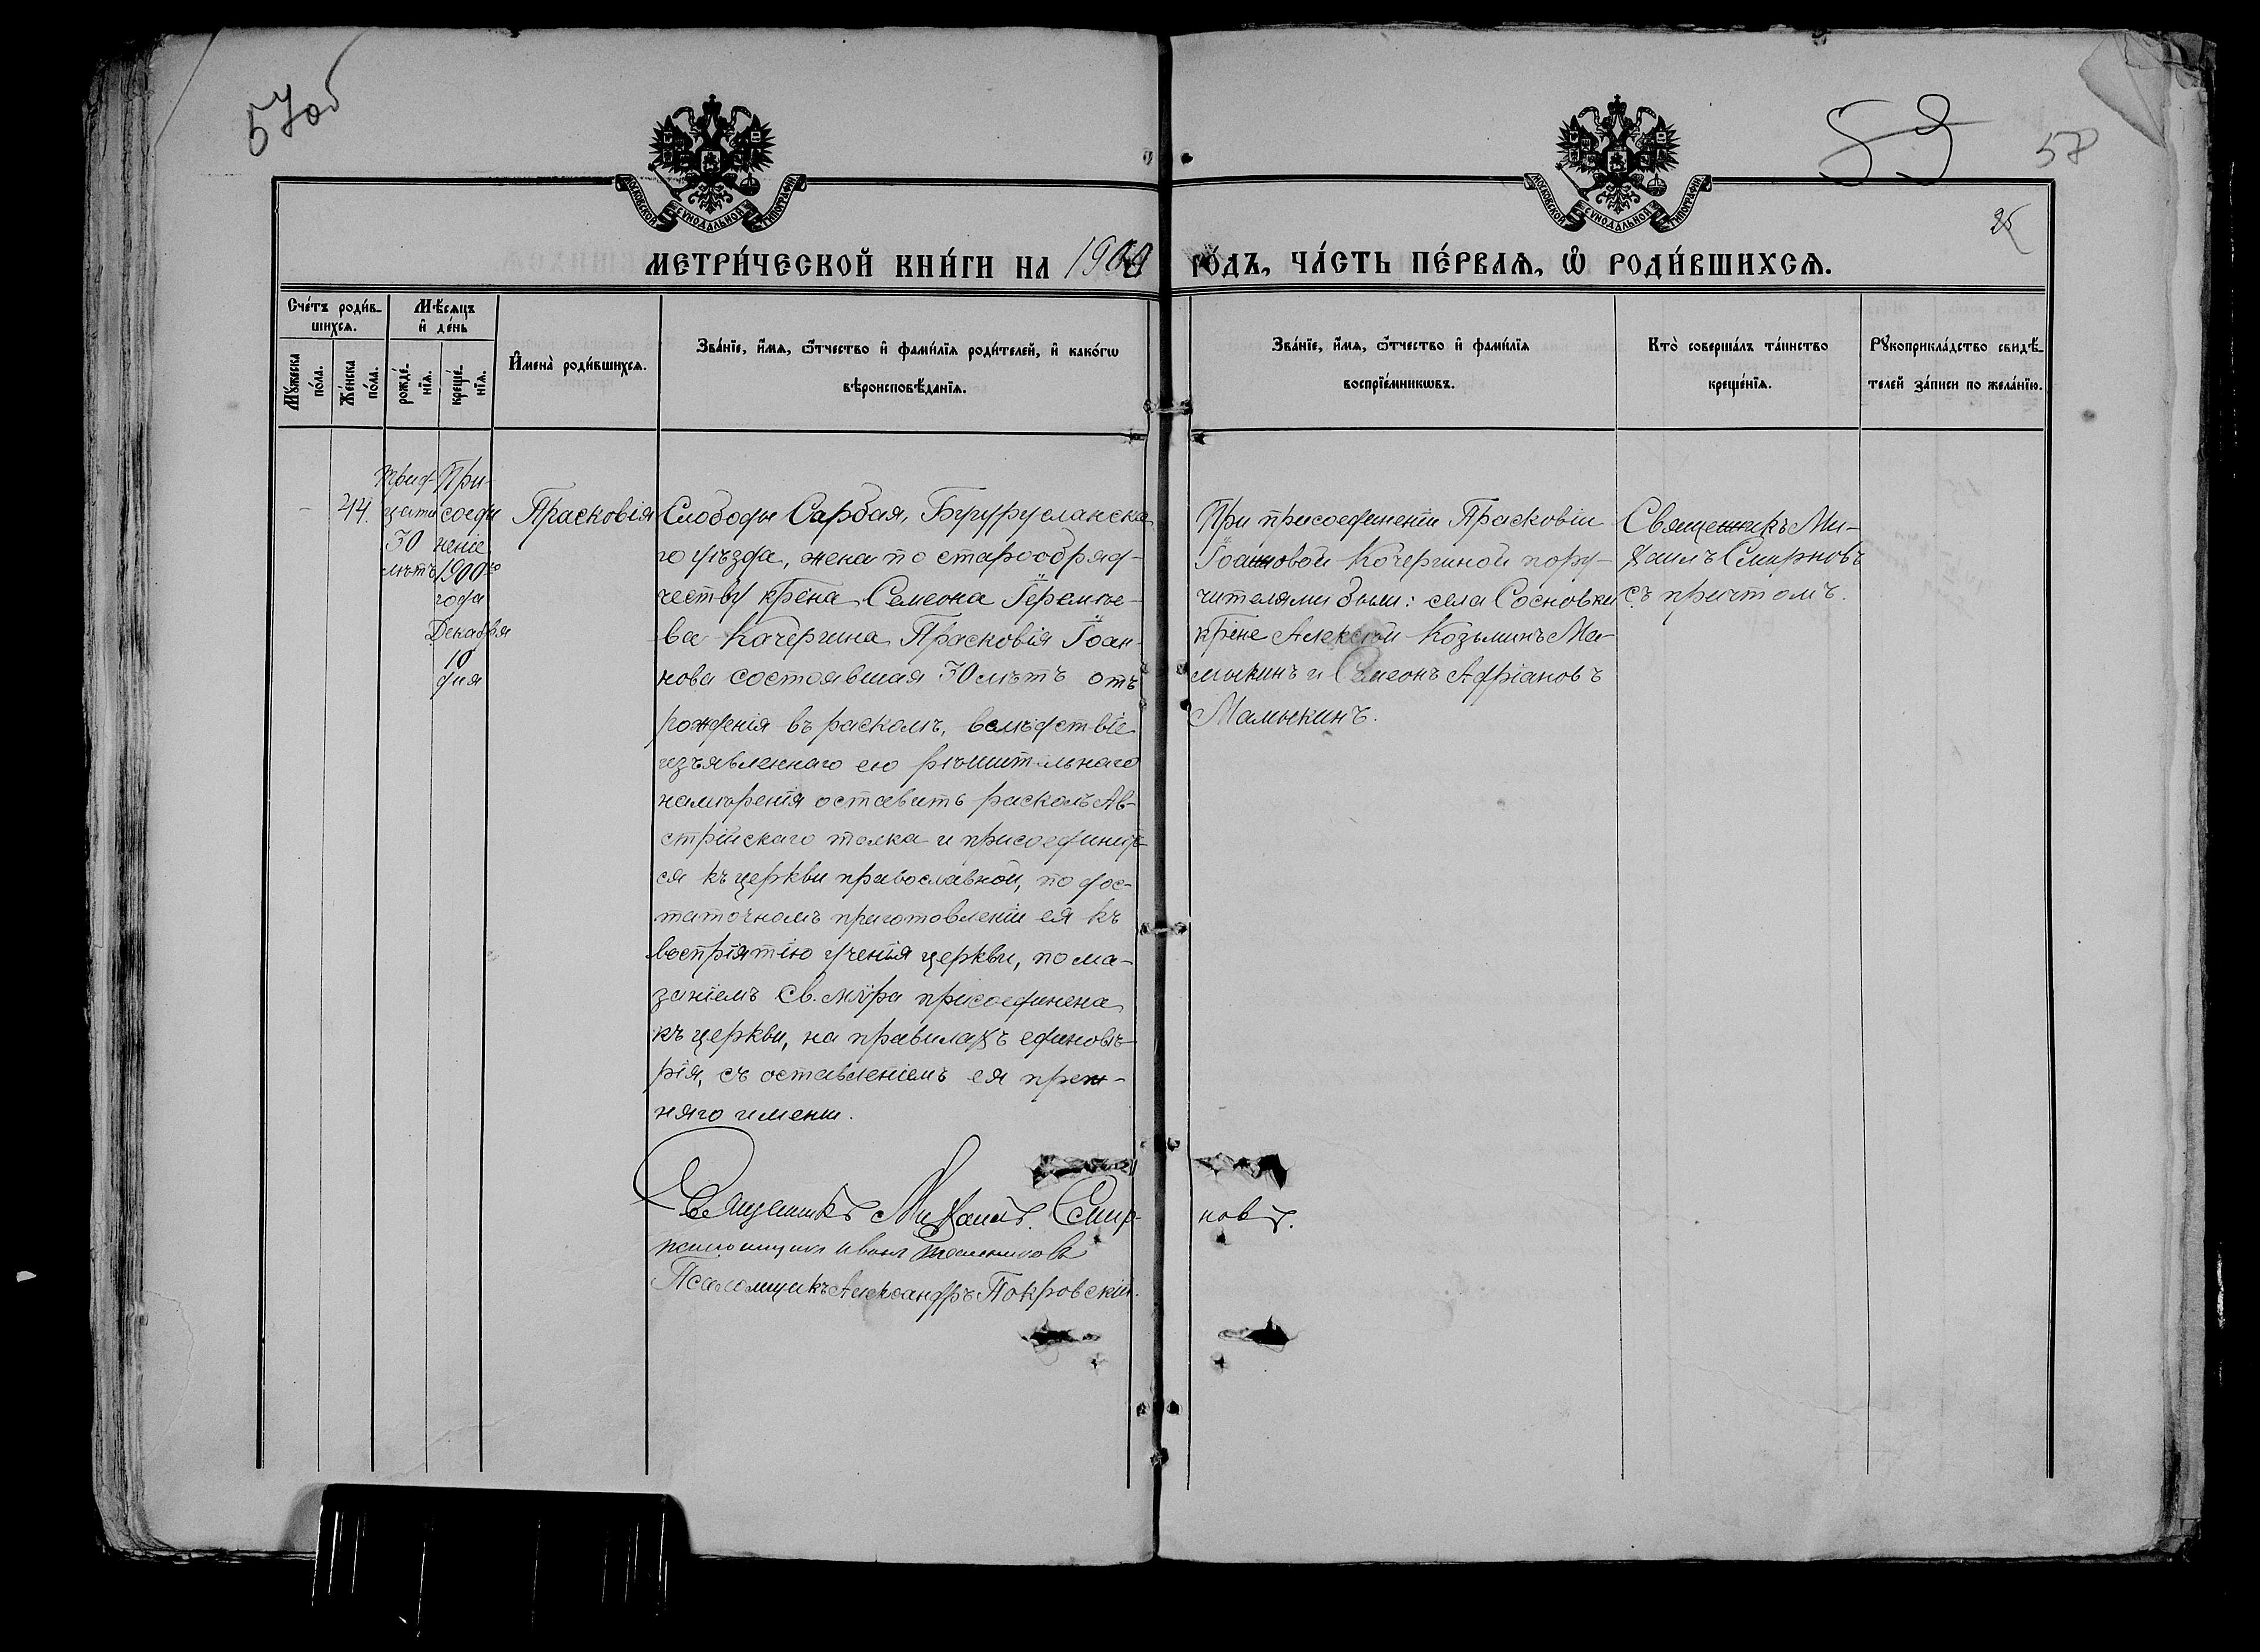 57об
59
58
25
МОСКОВСКОЙ СУНОДАЛЬНОЙ ТИПОГРАФІИ
МОСКОВСКОЙ СУНОДАЛЬНОЙ ТИПОГРАФІИ
МЕТРИ́ЧЕСКОЙ КНИ́ГИ НА 1900 ГО́ДЪ, ЧА́СТЬ ПЕ́РВАѦ, Ѽ РОДИ́ВШИХСѦ.
Сче́тъ роди́в-
шихсѧ.
Мꙋжеска
по́ла.
Же́нска
по́ла.
Мѣ́сѧцъ
и҆ де́нь
рожде́-
нїѧ.
креще́-
нїѧ.
И҆мена̀ роди́вшихсѧ.
Зва́нїе, и҆́мѧ, ѻ҆́тчество и҆ фами́лїѧ роди́телей, и҆ како́гѡ
вѣроисповѣ́данїѧ.
Зва́нїе, и҆́мѧ, ѻ҆́тчество и҆ фами́лїѧ
воспрїе́мникѡвъ.
Кто̀ соверша́лъ та́инство
креще́нїѧ.
Рꙋкоприкла́дство свидѣ́-
телей за́писи по жела́нїю.
-
44.
Трид-
цати
30
лѣтъ
При-
соеди
неніе
1900го
года
Декабря
10
дня
Прасковія
Слободы Сарбая, Бугурусланска
го уѣзда, жена по старообряд-
честву крена Семеона Іереміе-
ва Качергина Прасковія Іоан-
нова состоявшая 30 лѣтъ отъ
рожденія въ расколѣ, вслѣдствіе
изъявленнаго ею рѣшительнаго
намѣренія оставить расколъ Ав-
стрійскаго толка и присоединит-
ся къ церкви православной, по дос-
таточномъ приготовленіи ея къ
воспріятію ученія церкви, пома-
заніемъ св. мѵра присоединена
къ церкви, на правилахъ единовѣ-
рія, съ оставленіемъ ея преж-
няго имени.
При присоединеніи Прасковіи
Іоанновой Качергиной пору-
чителями были: села Сосновки
крене Алексѣй Козьминъ Ма-
мыкинъ и Симеонъ Адріановъ
Мамыкинъ.
Священникъ Ми-
хаилъ Смирновъ
съ причтомъ.
Священникъ Михаилъ Смир-
новъ.
псаломщикъ Иванъ
Псаломщикъ Александръ Покровскій.